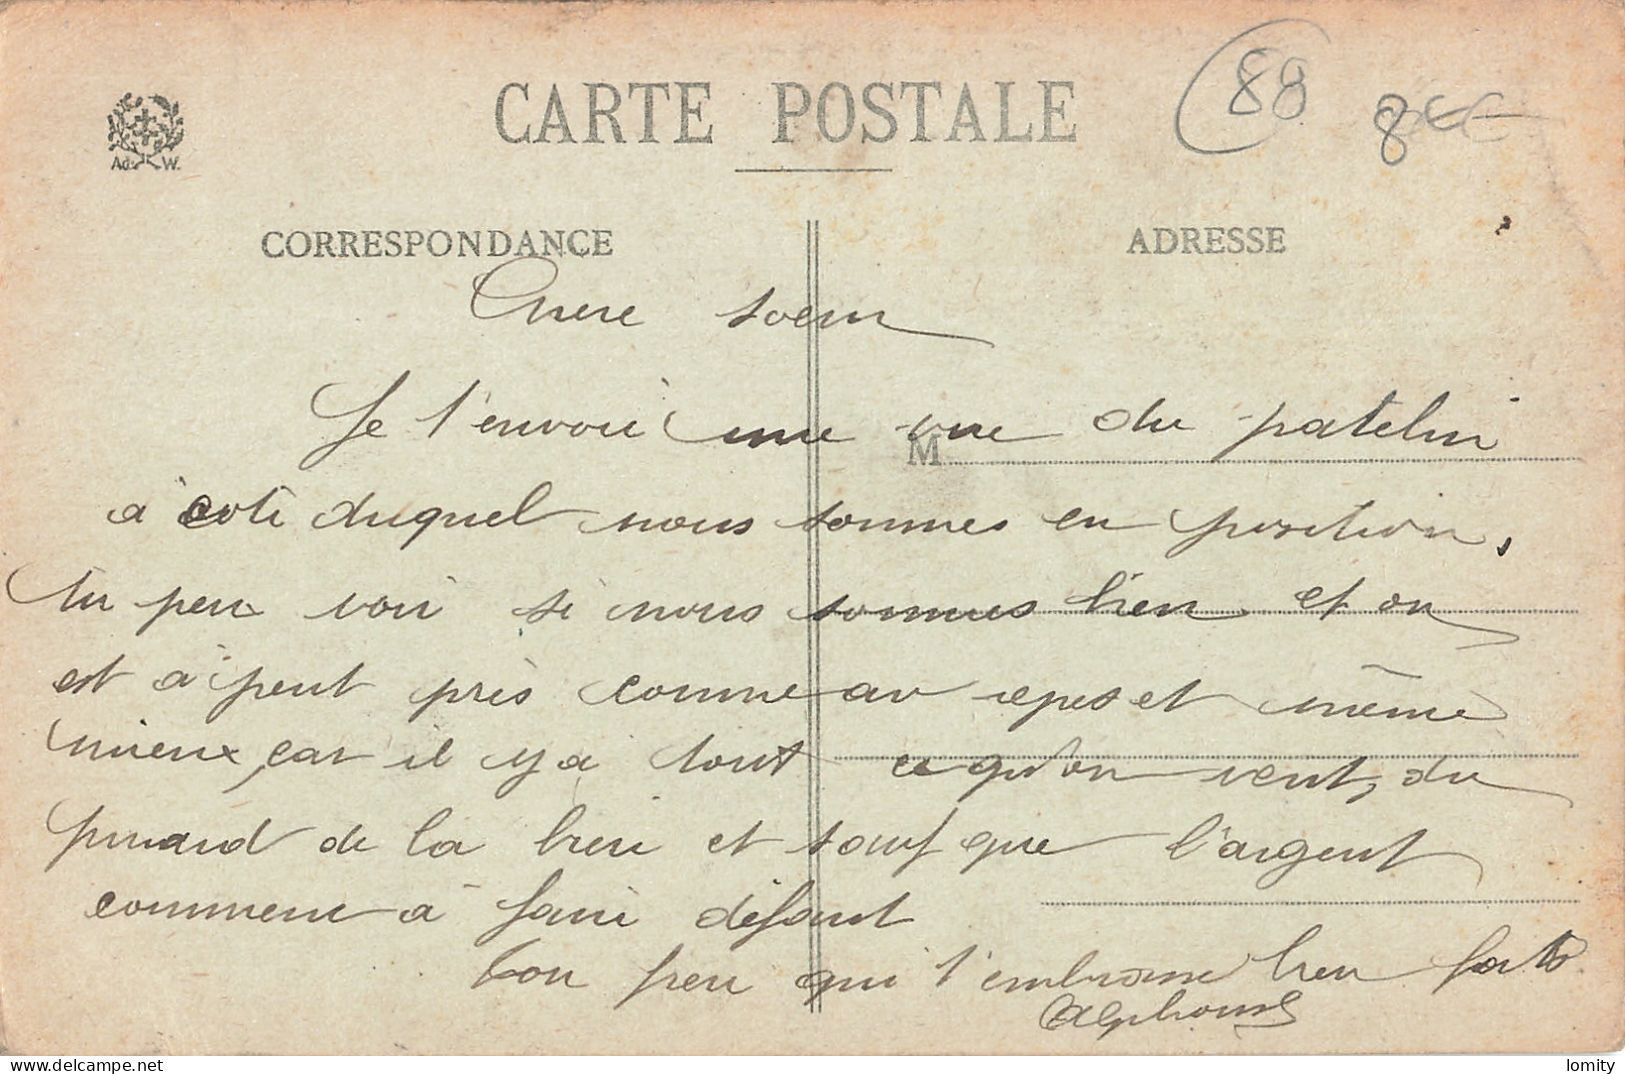 CARTE POSTALE
88
8€
Ad. W.
CORRESPONDANCE
ADRESSE
Chere soeur
Je t'envoie une vue du patelin
M
à coté duquel nous sommes en position,
tu peux voir si nous sommes bien. et on
est à peut près comme au repos et même
mieux, car il y a tout ce qu'on veut, du
pinard de la biere et sauf que l'argent
commence à faire défaut
Ton frere qui t'embrasse bien fort
Alphonse
lomity